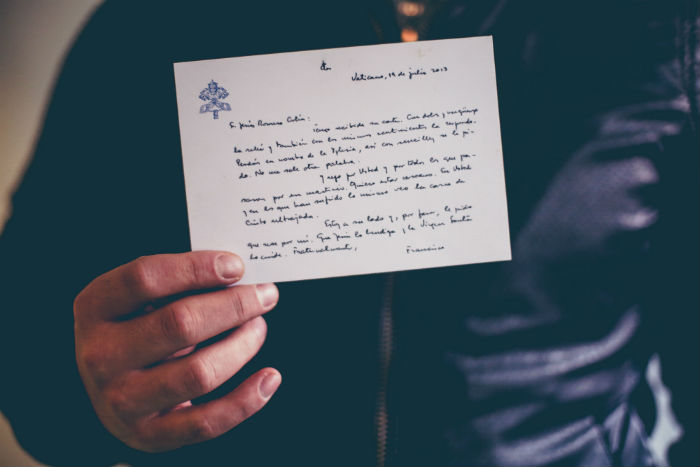 Vaticano, 19 de julio 2013
S. Jesús Romero Colín:
Tengo recibida su carta. Con dolor y vergüenza
la releí y también con los mismos sentimientos la respondo.
Perdón en nombre de la Iglesia, así con sencillez se lo pi-
do. No me sale otra palabra.
Y rogo por Usted y por todos los que pa-
saron por ese martirio. Quiero estar cercano. En Usted
y en los que han sufrido lo mismo veo la carne de
Cristo ultrajada.
Estoy a su lado y, por favor, le pido
que rece por mí. Que Jesús lo bendiga y la Virgen Santa
lo cuide. Fraternalmente,
Francisco